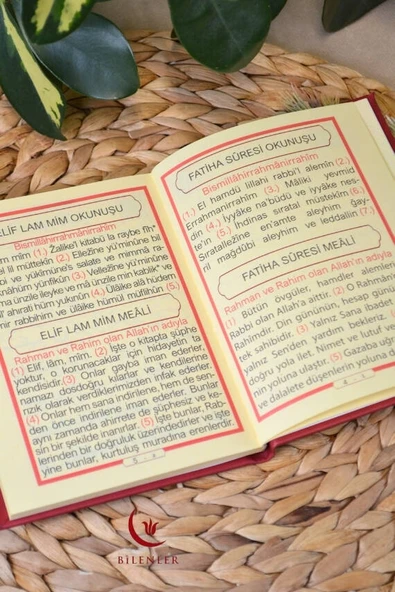 ELİF LAM MİM OKUNUŞU
Bismillâhirrahmânirrahîm
mîm (1.) Zâlike'l kitâbü la raybe fîh
lil müttekîn (2.) Ellezîne yü'minûne bi
bi ve yükîmûne's salate ve mimmâ ra-
nâhüm yünfikûn (3.) Vellezîne yü'minûne
ma ünzile ileyke ve mâ ünzile min kablik" ve
l' ahirati hüm yukınûn (4.) Ülâike alâ hüdem
rabbihim ve ülâike hümül müflihûn (5.)
ELİF LAM MİM MEÂLİ
Rahman ve Rahim olan Allah'ın adıyla
(1) Elif, lâm, mîm. (2.) İşte o kitapta şüphe
yoktur, o korunacaklar için hidayetin ta
kendisidir.(3) Onlar gayba iman ederler,
namazı dosdoğru kılarlar ve kendilerine
rızık olarak verdiklerimizden infak ederler.
(4) Onlar hem sana indirilene, hem de sen-
den önce indirilene iman ederler. Bunlar
aynı zamanda ahirete de şüphesiz ve ke-
sin bir şekilde inanırlar. (5) İşte bunlar, Rab-
lerinden bir doğruluk üzerindedirler ve işte
yine bunlar, kurtuluş muradına erenlerdir.
5
FATİHA SÛRESİ OKUNUŞU
Bismillâhirrahmânirrahîm
(1.) El hamdü lillahi rabbi'l alemîn (2.)
Errahmanirrahîm (3.) Mâliki yevmid
dîn (4.) İyyâke na'büdü ve iyyâke nes-
te'în (5.) İhdinas siratal müstekîm (6.)
Sıratallezîne en'amte aleyhim ğay-
ril mağdûbi aleyhim ve leddallîn (7.)
FATİHA SÛRESİ MEÂLİ
Rahman ve Rahim olan Allah'ın adıyla
(1) Bütün övgüler, hamdler alemlerin
Rabbi olan Allah'a aittir. (2) O Rahmân
Rahimdir. Din gününün, hesap günü
tek sahibidir. (3) Yalnız Sana ibadet
yalnız Sen'den yardım bekleriz. (4)
doğru yola ilet. Nimet ve lutuf ver
nin yoluna ulaştır. (5) Gazaba uğ
ve dalalete düşenlerin yoluna d
4
BİLENLER